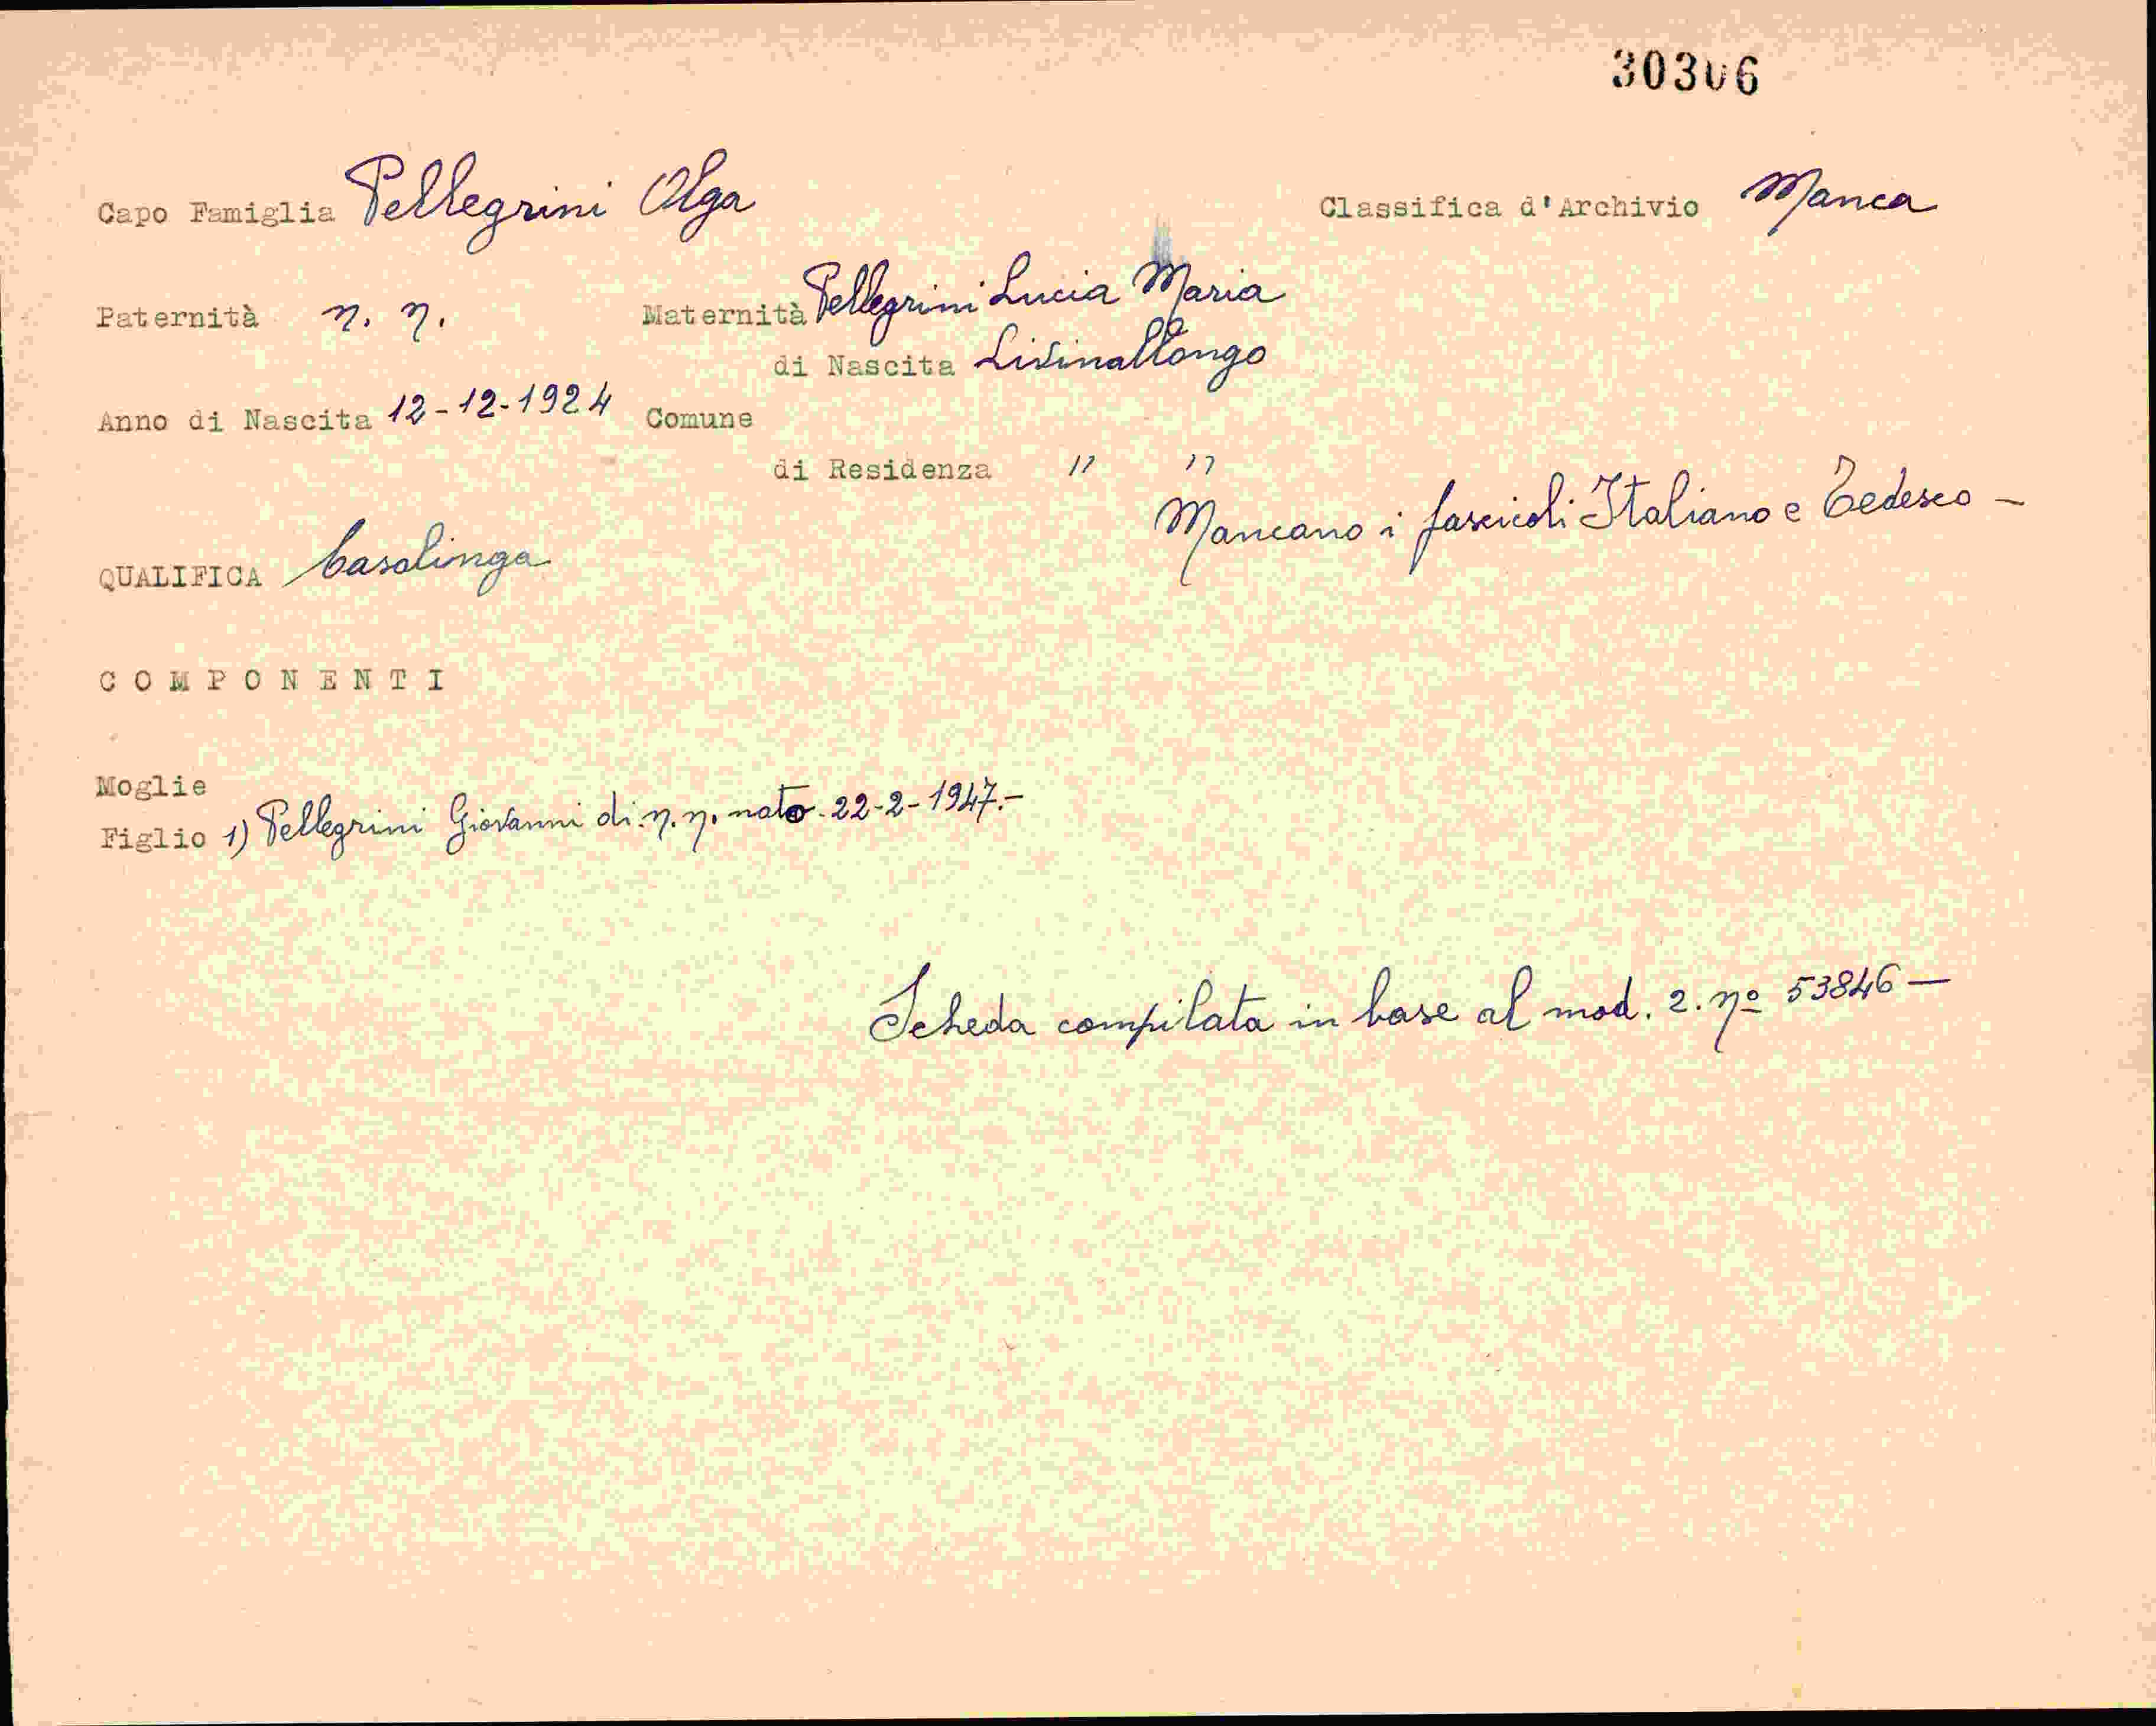 30306
Capo Famiglia Pellegrini Olga Classifica d'Archivio Manca
Paternità n. n. Maternità Pellegrini Lucia Maria
di Nascita Livinallongo
Anno di Nascita 12-12-1924 Comune
di Residenza " "
Mancano i fascicoli Italiano e Tedesco -
QUALIFICA Casalinga
COMPONENTI
Moglie
Figlio 1) Pellegrini Giovanni di n. n. nato 22-2-1947.-
Scheda compilata in base al mod. 2. nº 53846 -